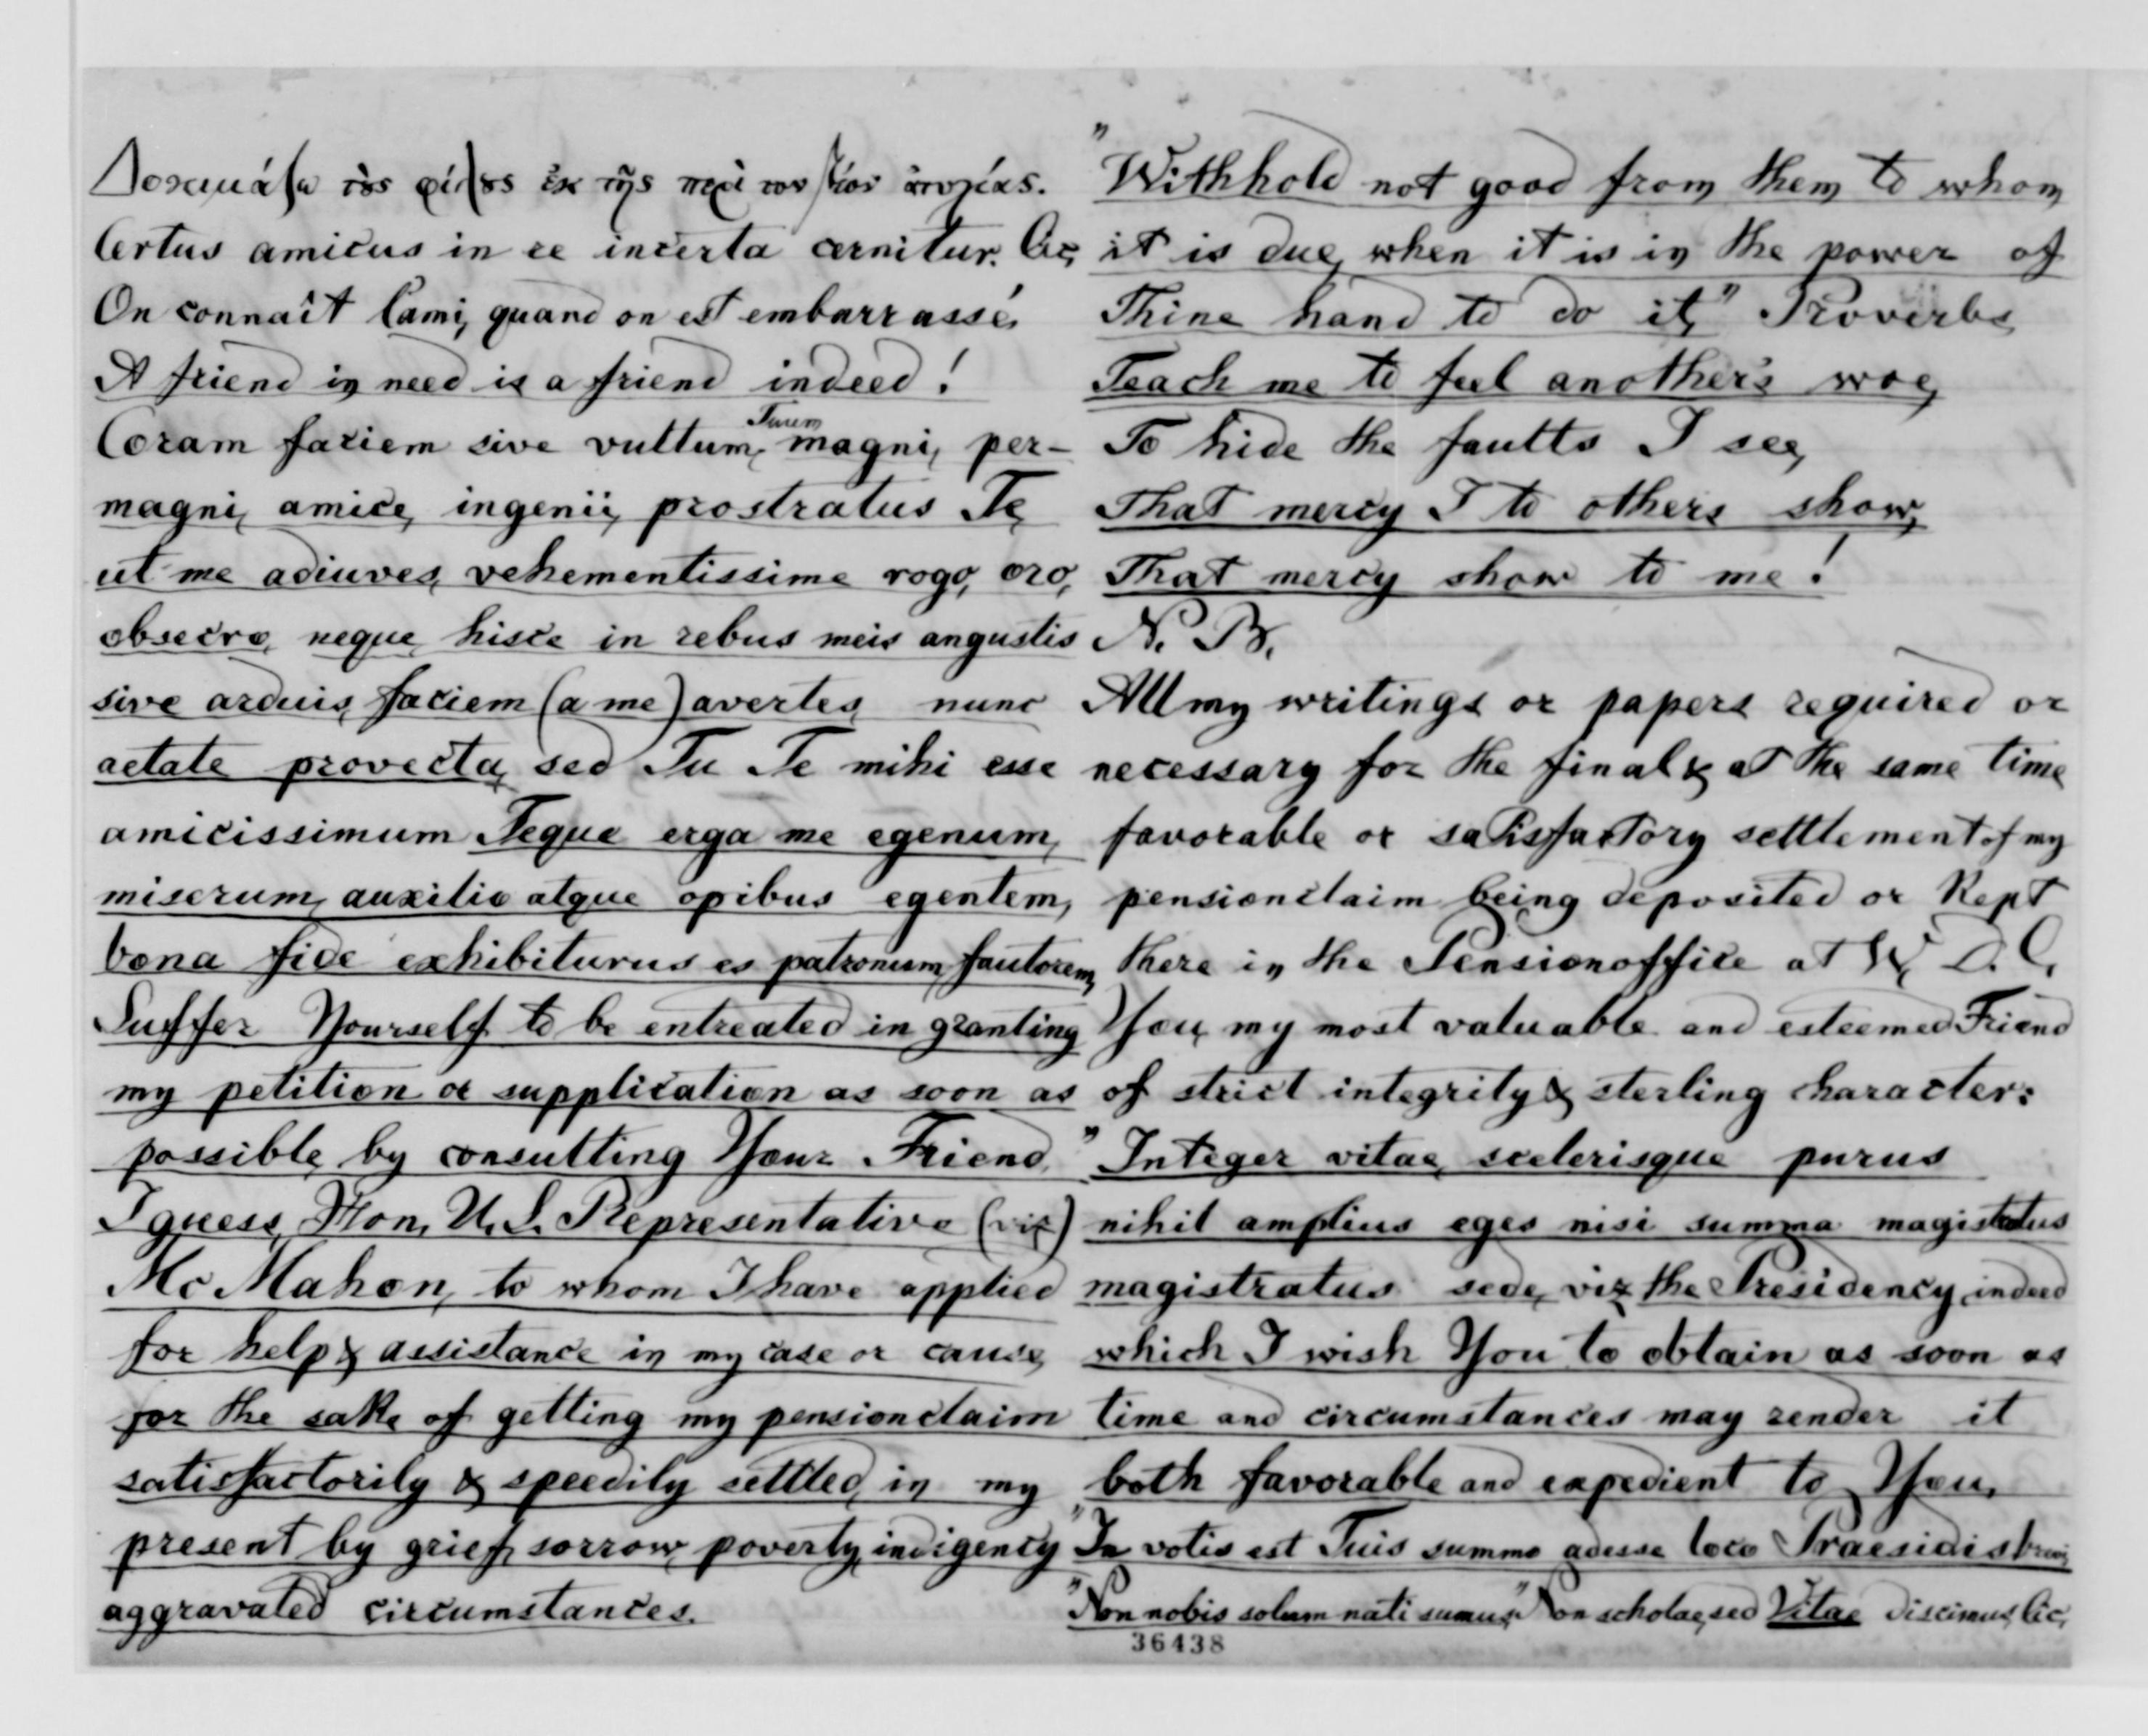 Δοκιμάζω τὸς φίλος ἐκ τῆς περὶ τον βίον ἀτυχίας.
Certus amicus in re incerta cernitur. Cic,
On connaît l'ami, quand on est embarrassé.
A friend in need is a friend indeed!
Coram faciem sive vultum, Tuum magni, per-
magni, amice, ingenii, prostratus Te,
ut me adiuves, vehementissime rogo, oro,
obsecro, neque hisce in rebus meis angustis
sive arduis, faciem (a me) avertes, nunc
aetate provecta, sed Tu Te mihi esse
amicissimum Teque erga me egenum,
miserum, auxilio atque opibus egentem,
bona fide exhibiturus es patronum, fautorem,
Suffer Yourself to be entreated in granting
my petition or supplication as soon as
possible, by consulting Your Friend,
I guess, Hon. U. S. Representative (viz)
Mc Mahon, to whom I have applied
for help & assistance in my case or cause,
for the sake of getting my pensionclaim
satisfactorily & speedily settled, in my
present by grief, sorrow, poverty, indigency
aggravated circumstances.
"Withhold not good from them to whom
it is due, when it is in the power of
Thine hand to do it," Proverbs
Teach me to feel another's woe,
To hide the faults I see,
That mercy I to others show,
That mercy show to me!
N. B.
All my writings or papers required or
necessary for the final & at the same time
favorable or satisfactory settlement of my
pensionclaim being deposited or kept
there in the Pensionoffice at W. D. C.
You, my most valuable and esteemed Friend
of strict integrity & sterling character:
"Integer vitae, scelerisque purus
nihil amplius eges nisi summa magistratus
magistratus sede, viz the Presidency, indeed
which I wish You to obtain as soon as
time and circumstances may render it
both favorable and expedient to You,
"In votis est Tuis summo adesse loco Praesidis
"Non nobis solum nati sumus," Non scholae, sed Vitae discimus, Cic,
36438